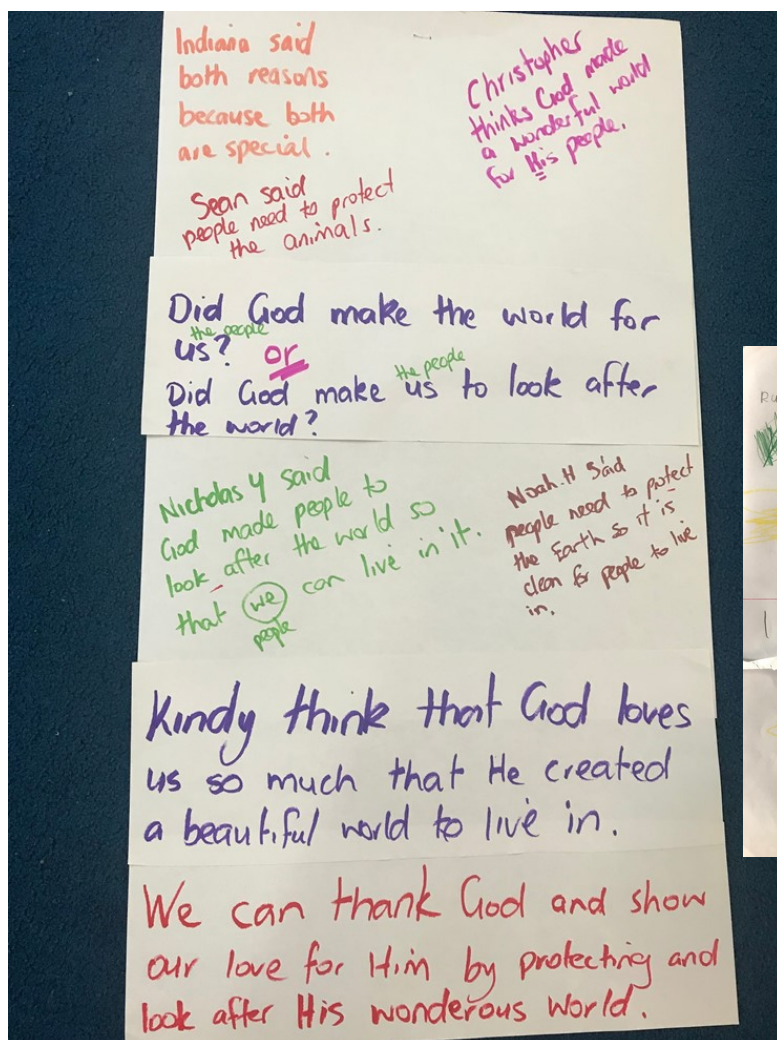 Indiana said
both reasons
because both
are special.
Christopher
thinks God made
a wonderful world
for His people.
Sean said
people need to protect
the animals.
Did God make the world for
the people
us? or
the people
Did God make us to look after
the world?
Nicholas Y said
God made people to
look after the world so
that we can live in it.
people
Noah.H Said
people need to protect
the Earth so it is
clean for people to live
in.
Kindy think that God loves
us so much that He created
a beautiful world to live in.
We can thank God and show
our love for Him by protecting and
look after His wonderous world.